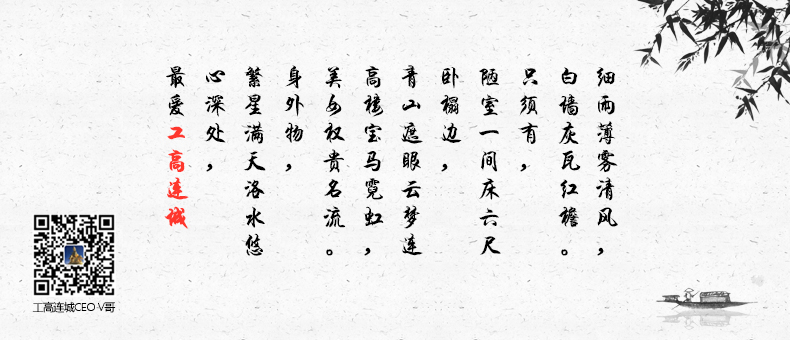 细雨薄雾清风，
白墙灰瓦红檐。
只须有，
陋室一间床六尺
卧榻边，
青山遮眼云梦连
高楼宝马霓虹，
美女权贵名流。
身外物，
繁星满天洛水悠
心深处，
最爱工高连城
工高连城CEO V哥